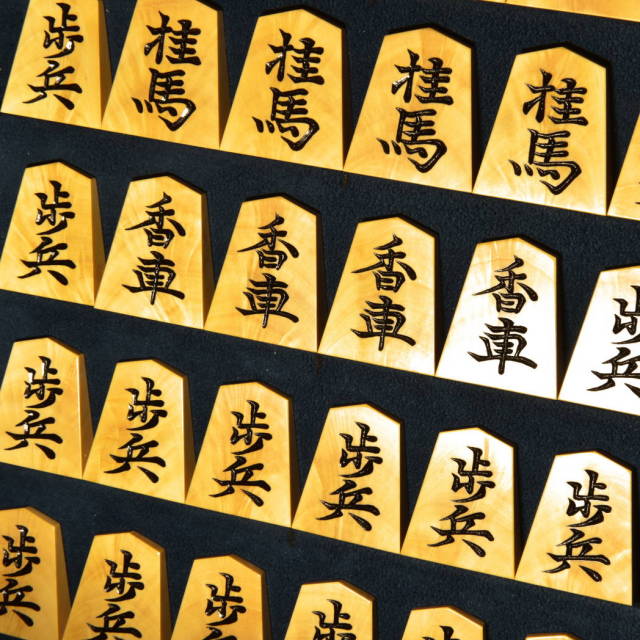 歩兵 桂馬 桂馬 桂馬 桂馬
歩兵 香車 香車 香車 香車 歩兵
歩兵 歩兵 歩兵 歩兵 歩兵 歩兵
歩兵 歩兵 歩兵 歩